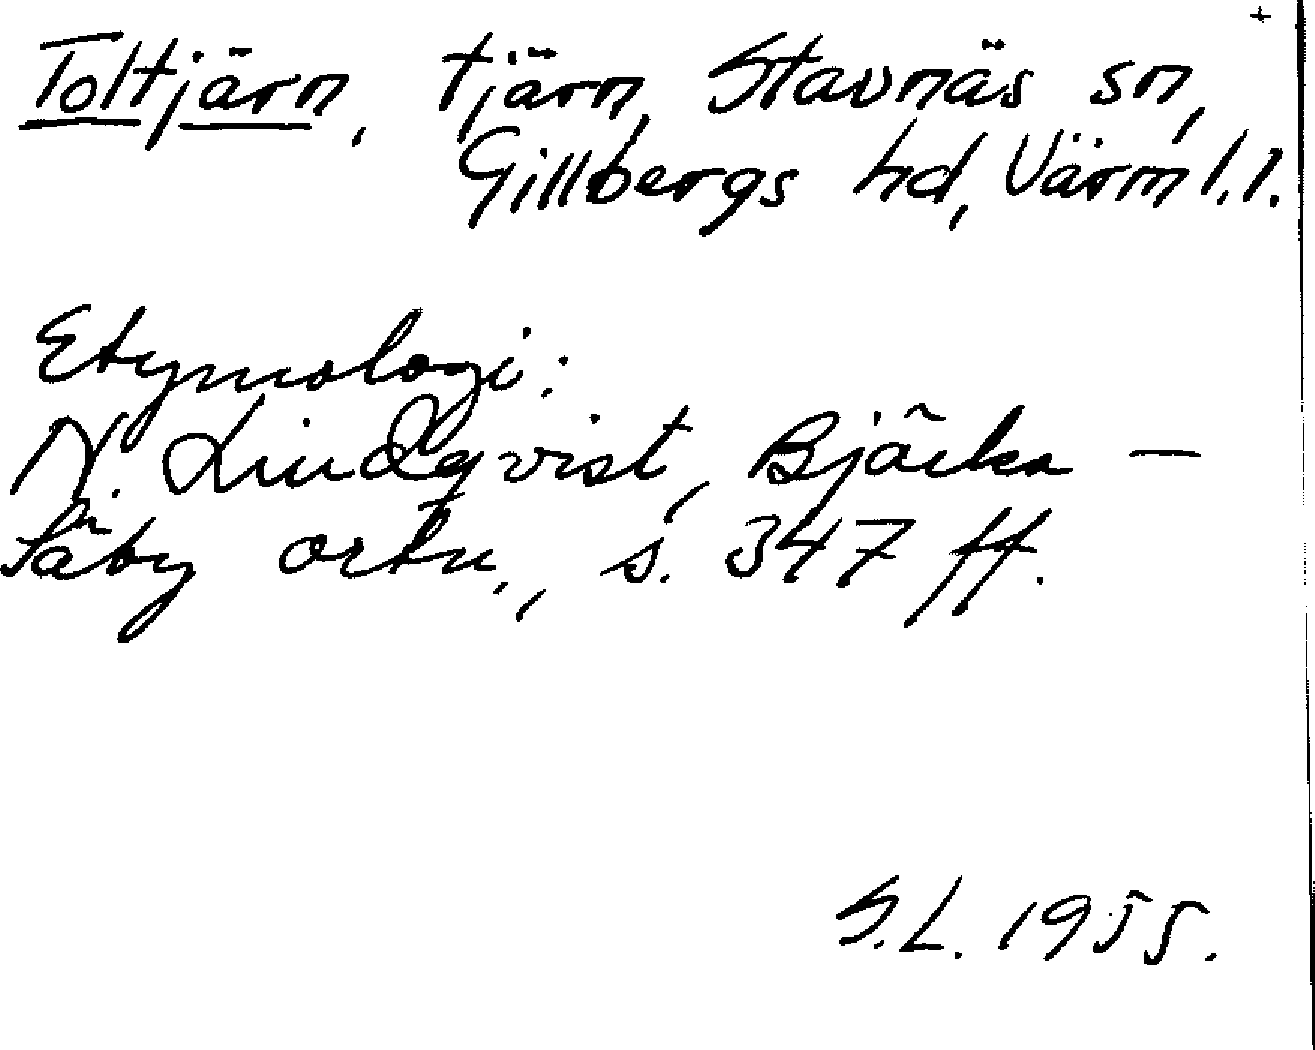 +
Toltjärn, tjärn, Stavnäs sn,
Gillbergs hd, Värml. l.
Etymologi:
N. Lindqvist, Bjärka –
Säby ortn., s. 347 ff.
S.L. 1955.